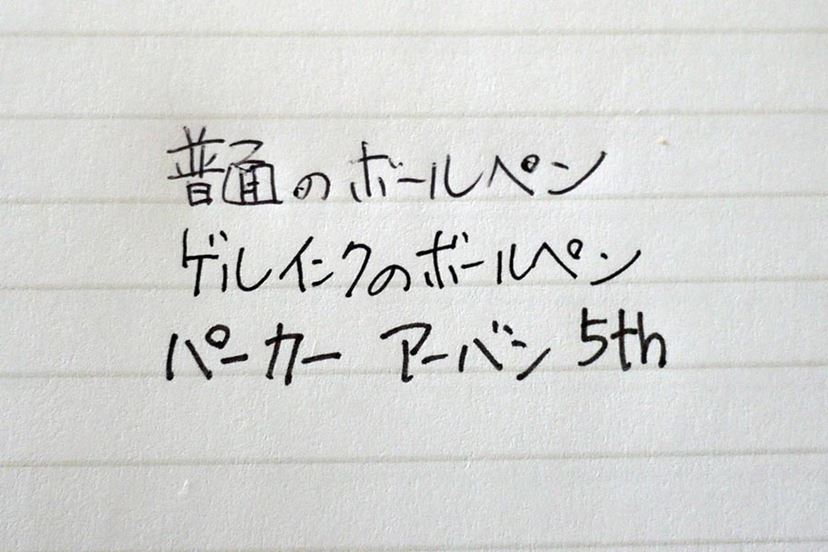 普通のボールペン
ゲルインクのボールペン
パーカー アーバン 5th